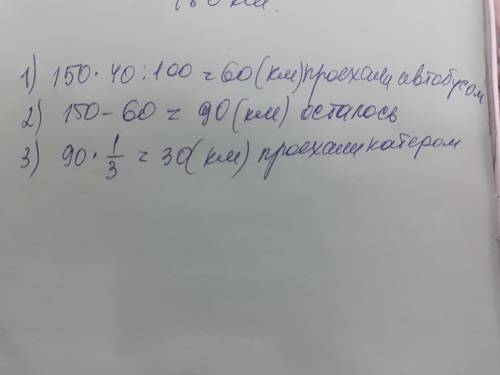 150 км.
1) 150·40:100=60(км) проехали автобусом
2) 150-60= 90(км) осталось
3) 90·1/3=30(км) проехали катером